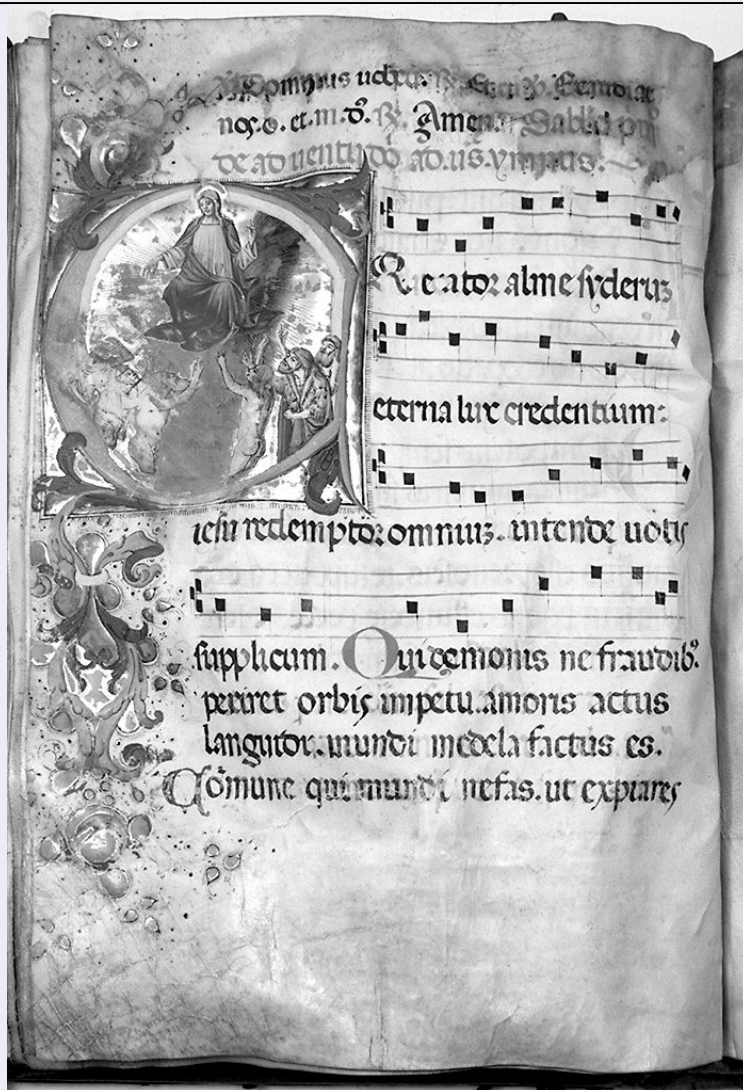 Dominus uobiscū.
nos. o. et. m. ō. ℟. Amen. Sabb'o
de aduentu dō ad. us. ympnus.
Reator alme syderuz
eterna lux credentium:
iesu redemptor omniuz. intende uotis
supplicum. Qui demonis ne fraudib᾿.
periret orbis impetu. amoris actus
languidor. mundi medela factus es.
Cōmune qui mundi nefas. ut expiares